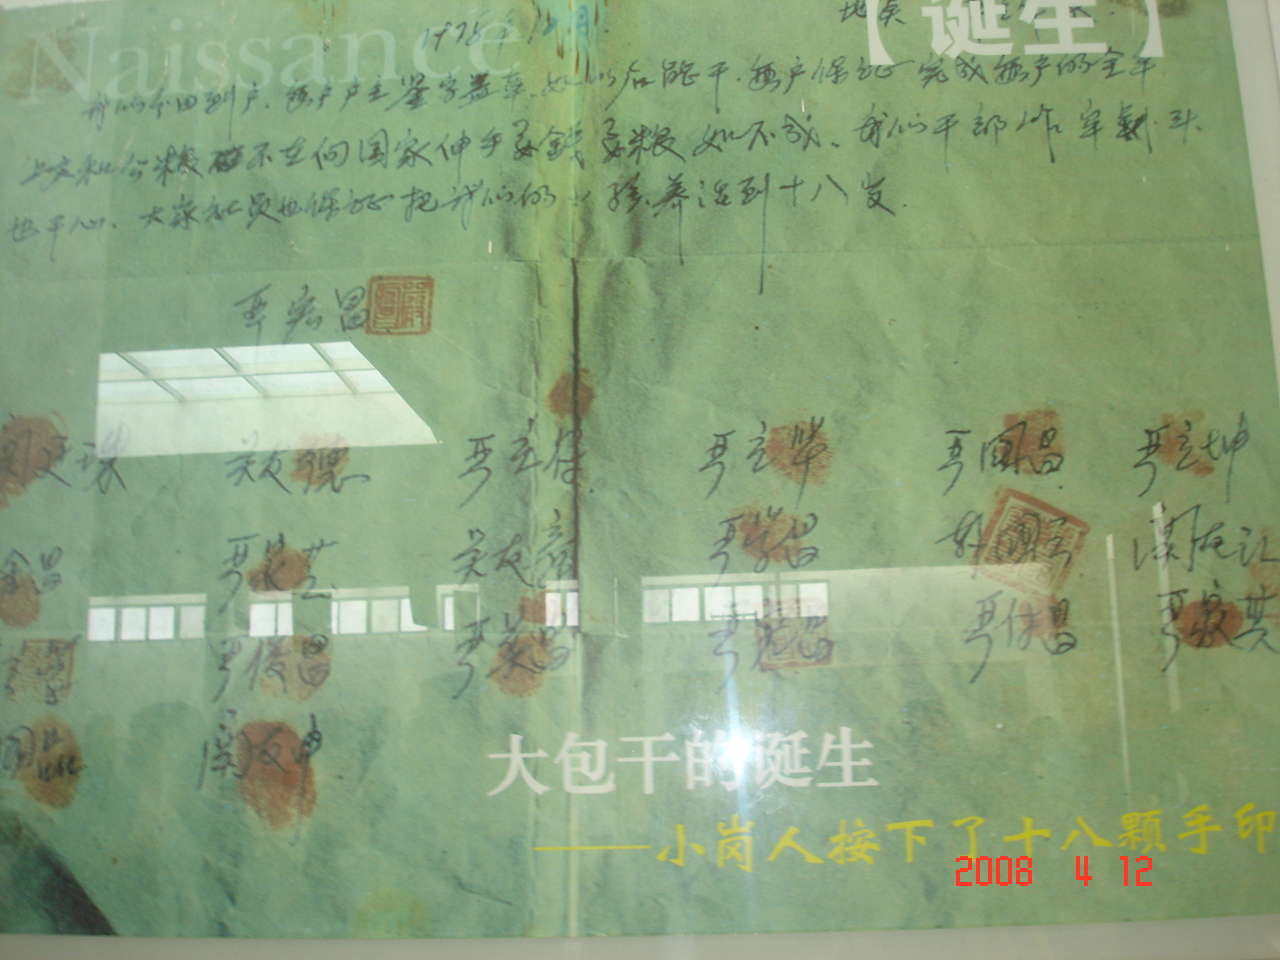 Naissance
【诞生】
1978年12月. 地点
我们分田到户.每户户主签字盖章.如以后能干.每户保证完成每户的全年
上交和公粮不在向国家伸手要钱要粮如不成、我们干部作牢剎头
也干心、大家社员也保证把我们的小孩养活到十八岁.
严宏昌
关友德 严立符 严立华 严国昌 严立坤
金昌 严家芝 关友章 严学昌 韩国云 关友江
严俊昌 严美昌 严宏昌 严付昌 严家其
国品 关友申
大包干的诞生
——小岗人按下了十八颗手印
2008 4 12